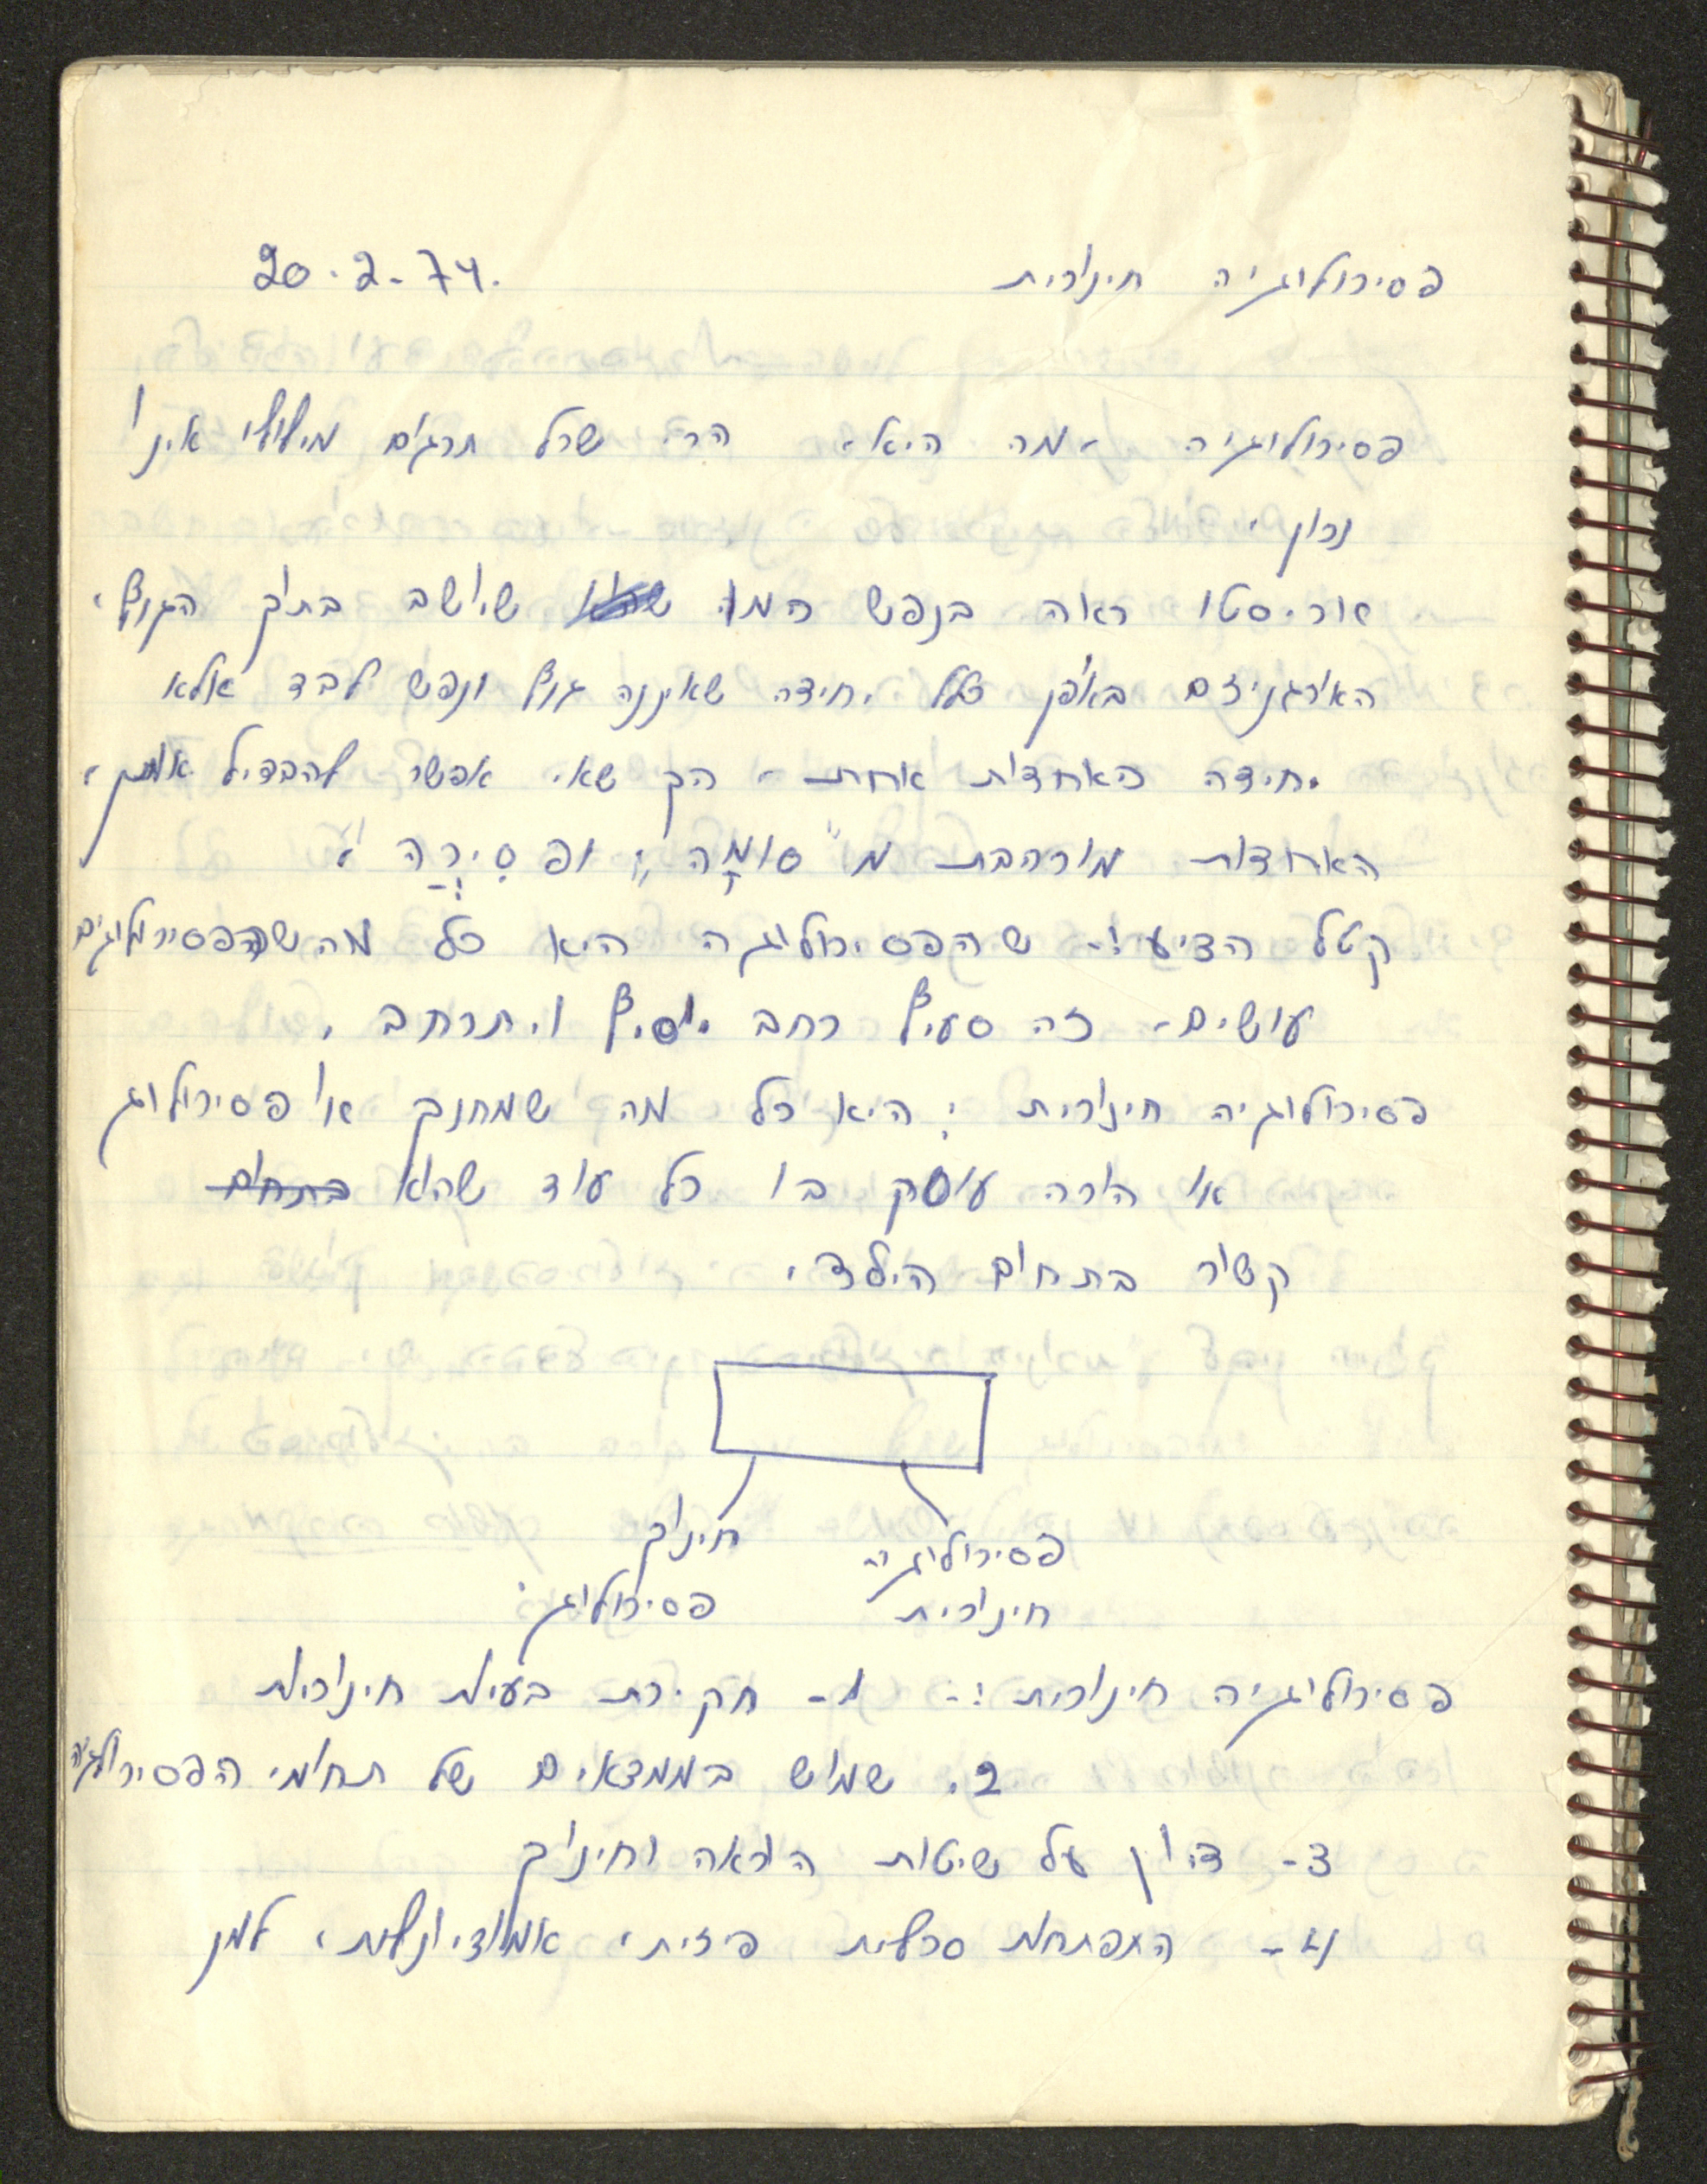 פסיכולוגיה חינוכית 20.2-74.
פסיכולוגיה - מה היא - הרי שכל תרגום מילולי אינו
נכון.
אריסטו ראה בנפש כמו שיושב בתוך הגוף.
האורגניזם באופן כללי יחידה שאיננה גוף ונפש לבד אלא
יחידה האחדות אחת - כך שאי אפשר להבדיל אותן.
האחדות מורכבת מ"סומָה" ופסִיכָה.
קטל הציע :- שהפסיכולוגיה היא כל מה שהפסיכולוגים
עושים - זה סעיף רחב יוסיף ויתרחב.
פסיכולוגיה חינוכית : היא כל מה שמחנך או פסיכולוג
או הורה עוסק בו כל עוד שהוא בתחום
קשור בתחום הילד.
פסיכולוגיה חינוך
חינוכית פסיכולוגי
פסיכולוגיה חינוכית :- 1- חקירת בעיות חינוכיות
2. שמוש בממצאים של תחומי הפסיכולוגיה
3- דיון על שיטות הוראה וחינוך
4- התפתחות סכלית פיזית, אמוציונלית,